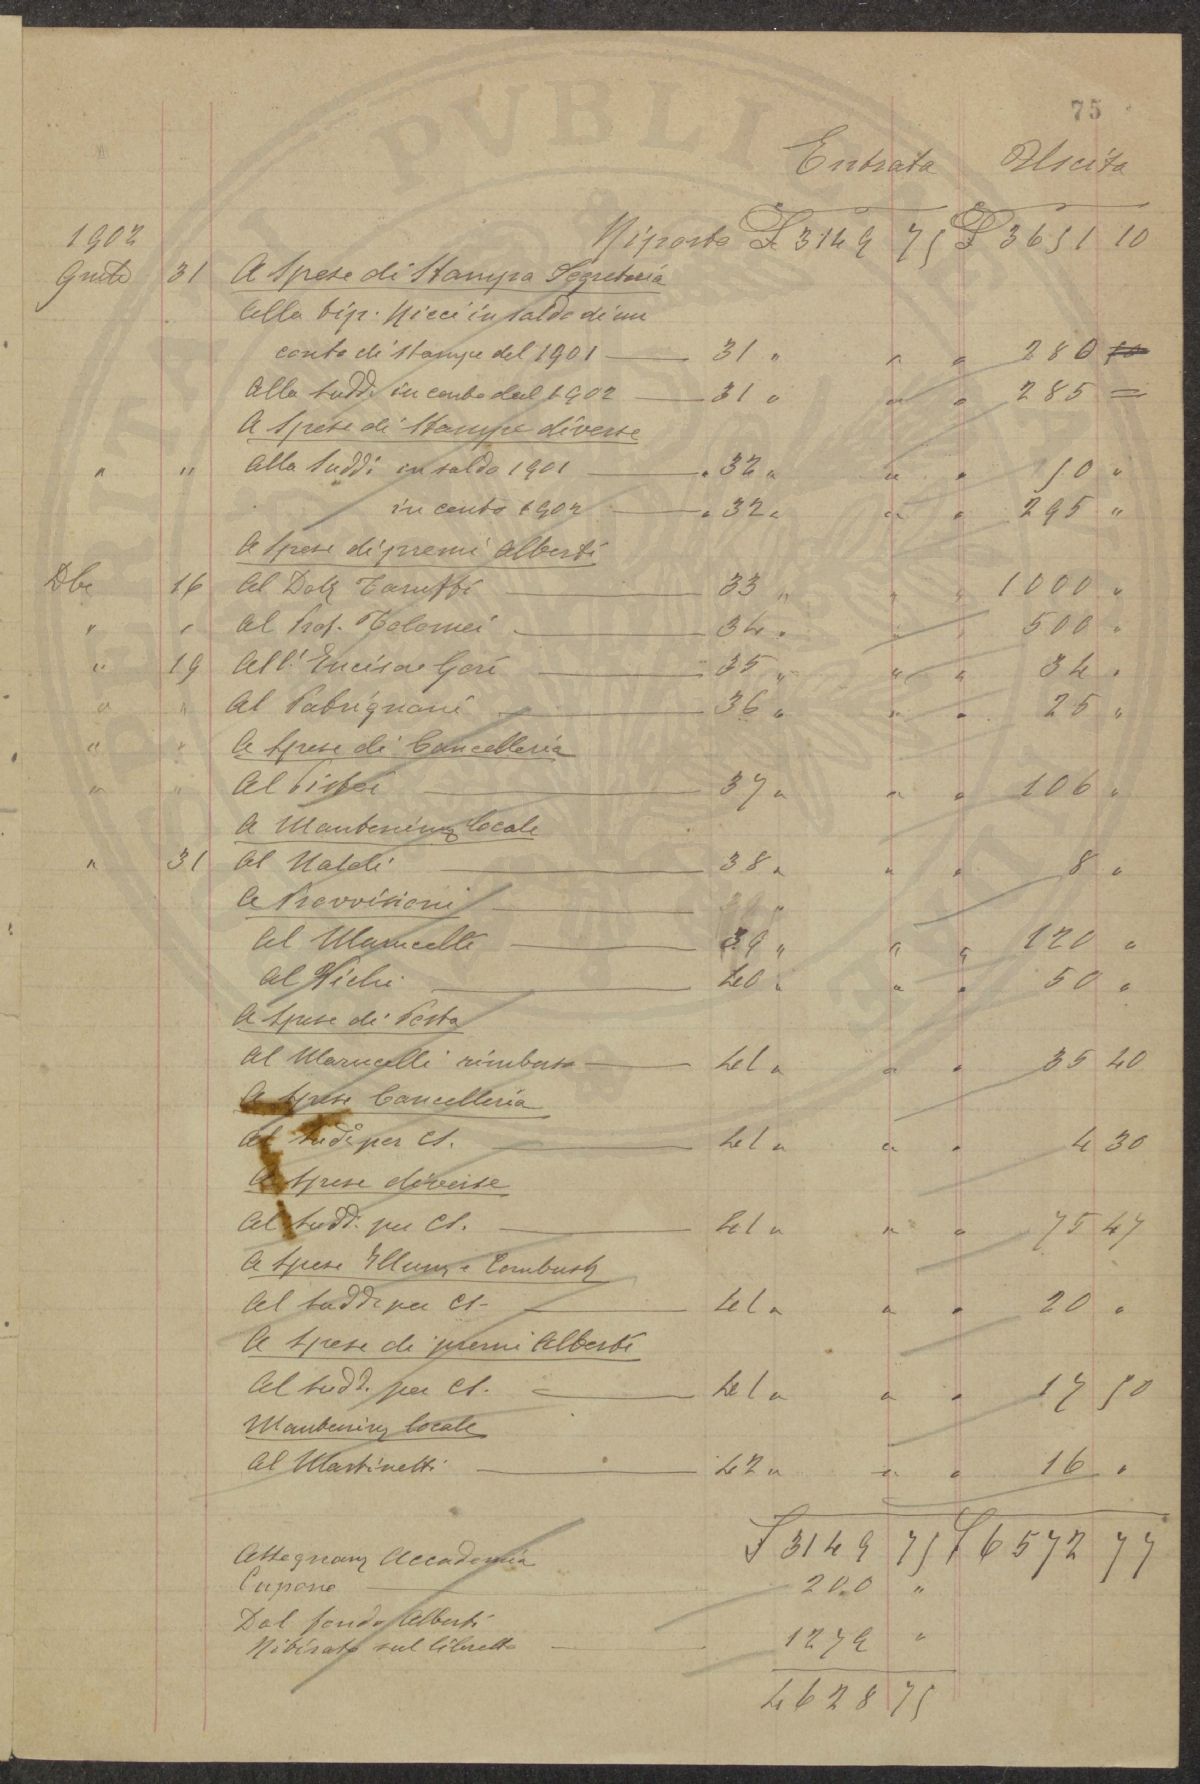 75
Entrata Uscita
1902 Riporto £ 3149 75 £ 3651 10
31 A Spese di Stampa Segreteria
Alla Tip. Ricci in saldo di un
conto di stampe del 1901 31 " " " 280
Alla sudd. in conto del 1902 31 " " " 285 =
A Spese di Stampe diverse
" " Alla sudd. in saldo 1901 " 32 " " " 50 "
in conto 1902 " 32 " " " 295 "
A Spese di premi Alberti
Dbe 16 Al Dott. Taruffi 33 " " " 1000 "
" " Al Prof. Tolomei 34 " " " 500 "
" 19 All' Incisore Gori 35 " " " 34 "
" " Al Fabrignani 36 " " " 25 "
" " A Spese di Cancelleria
" " Al Pistoi 37 " " " 106 "
A Mantenimz locale
" 31 Al Naldi 38 " " " 8 "
A Provvisioni "
Al Marucelli 39 " " " 120 "
Al Vichi 40 " " " 50 "
A Spese di Posta
Al Marucelli rimborso 41 " " " 35 40
A Spese Cancelleria
Al sudd. per Ct. 41 " " " 4 30
A Spese diverse
Al sudd. per Ct. 41 " " " 75 47
A Spese Illum. e Combust.
Al sudd. per Ct. 41 " " " 20 "
A Spese di premi Alberti
Al sudd. per Ct. 41 " " " 17 50
Mantenimz locale
Al Martinetti 42 " " " 16 "
£ 3149 75 £ 6572 77
Assegnanz Accademia
Cupone 200 "
Dal fondo Alberti
Ritirato sul libretto 1279 "
4628 75